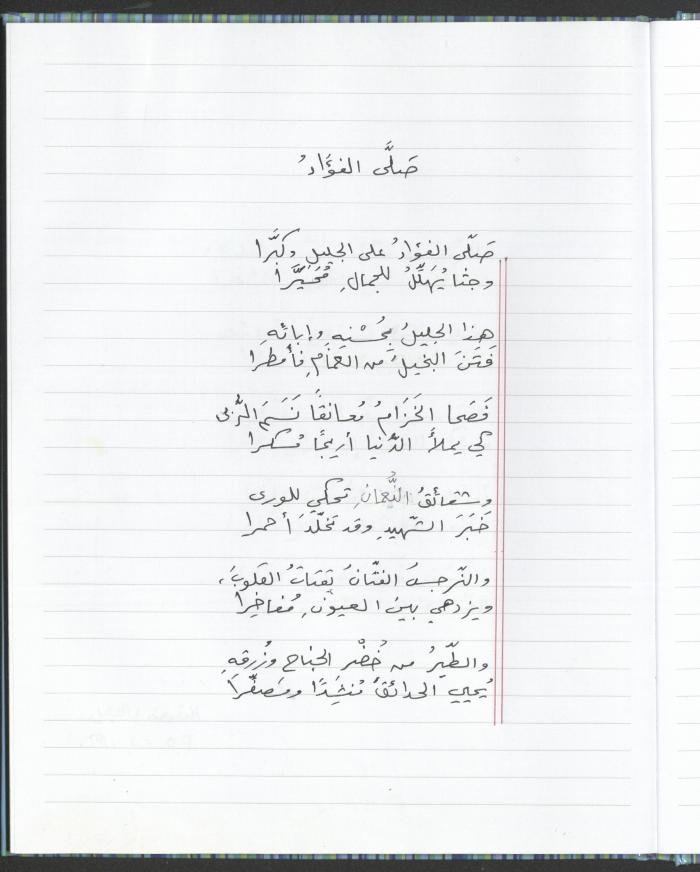 صَلَّى الفؤَادُ
صَلّى الفؤادُ على الجليلِ وكَبَّرا
وجثا يُهَلِّلُ للجمالِ مُحَيَّرا
هذا الجليلُ بحُسْنِهِ وإبائهِ
فَتَنَ البخيلَ من الغمَامِ فأمطرا
فَصَحا الخَزَامُ مُعانقًا نَسَمَ الرُّبى
كي يملأَ الدُّنيا أريجًا مُسكرا
وشقائقُ النُّعمانِ تحكي للورى
خَبَرَ الشّهيدِ وقد تخلّدَ أحمرا
والنّرجسُ الفتّانُ يقتاتُ القلوبَ،
ويزدهي بينَ العيونِ مُفاخِرا
والطّيرُ من خُضْرِ الجناحِ وزُرقهِ
يُحيي الحدائقَ مُنشِدًا ومُصفّرا